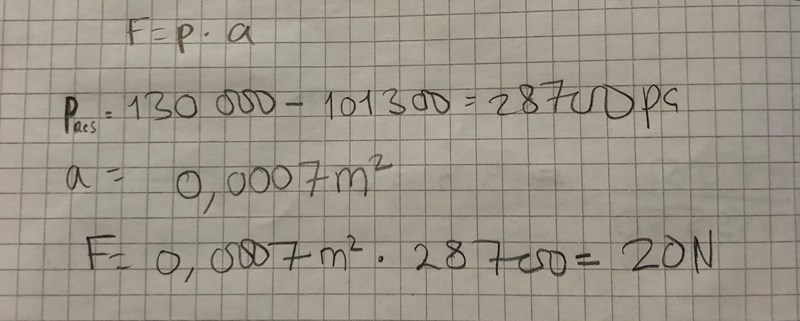 F = p · a
Pabs = 130 000 - 101300 = 28700 pa
a = 0,0007 m²
F = 0,0007 m² · 28700 = 20N